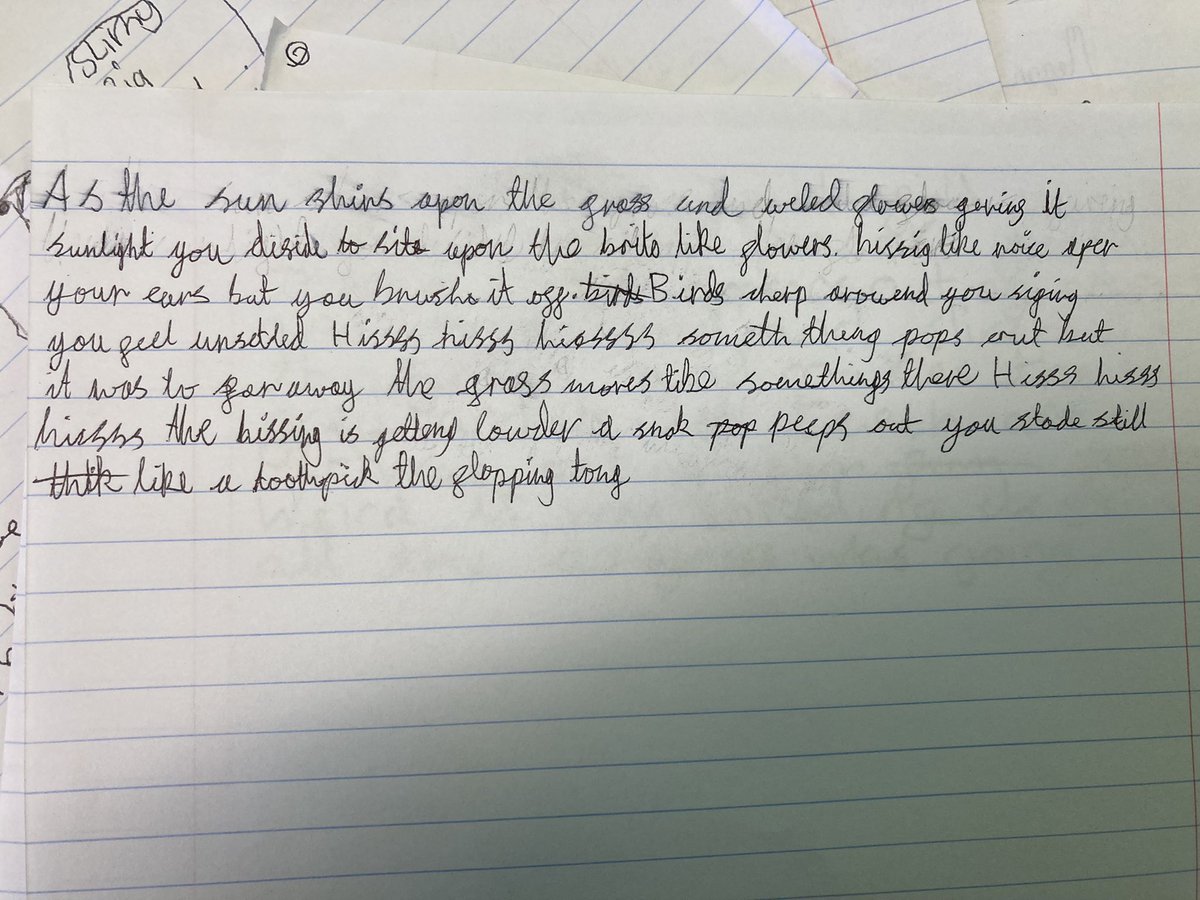 Slime
As the sun shins upon the grass and weled flowers geving it
sunlight you diside to sit upon the brits like flowers. hissig like noice uper
your ears but you brush it off. birds Birds cherp arowend you siging
you feel unsetled Hissss hisss hisssss someth theng pops out but
it was to far away the grass moves like somethings there Hisss hisss
hissss the hissing is getteng lowder a snak pop peeps out you stode still
thik like a toothpick the flopping tong